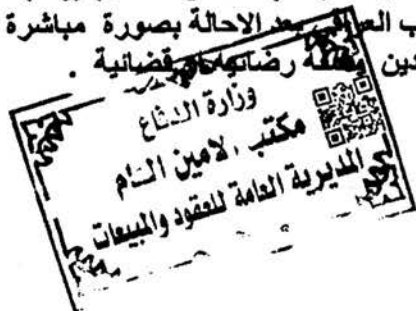 بعد الاحالة بصورة مباشرة
دين رضائية او قضائية .
وزارة الدفاع
مكتب الامين العام
المديرية العامة للعقود والمبيعات